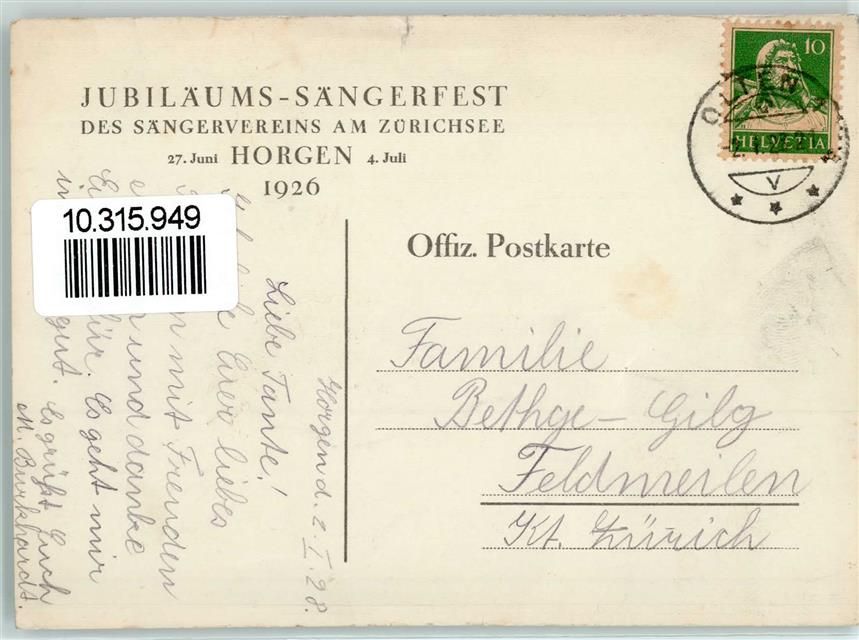 JUBILÄUMS-SÄNGERFEST
DES SÄNGERVEREINS AM ZÜRICHSEE
27. Juni HORGEN 4. Juli
1926
10
HELVETIA
OLTEN
V
10.315.949
Offiz. Postkarte
Familie
Bethge-Gilg
Feldmeilen
Kt. Zürich
Horgen d. 2. I. 28.
Liebe Tante!
Eurer liebes
mit Freuden
und danke
Es geht mir
gut. Es grüßt Euch
M. Burkhardt.